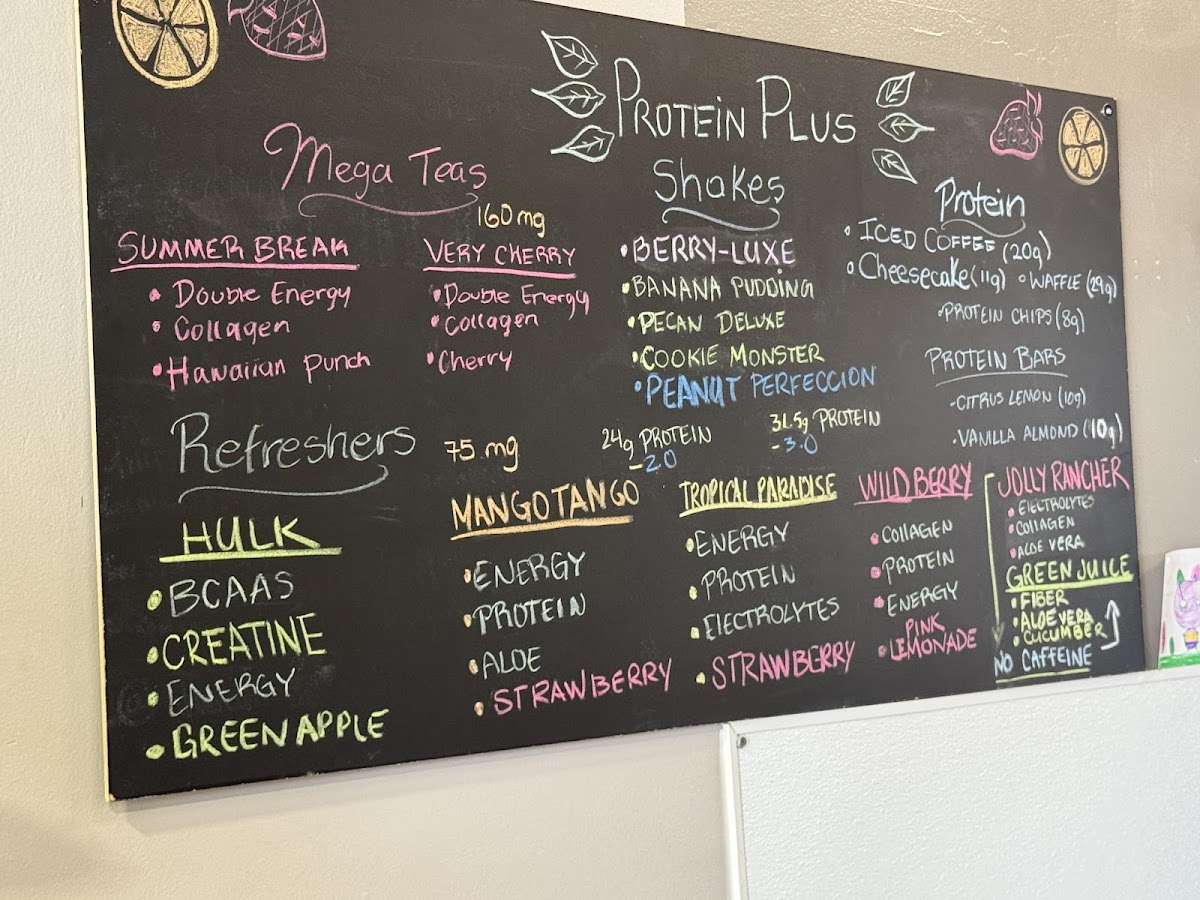 PROTEIN PLUS
Mega Teas
160 mg
SUMMER BREAK
• Double Energy
• Collagen
• Hawaiian Punch
VERY CHERRY
• Double Energy
• Collagen
• Cherry
Shakes
• BERRY-LUXE
• BANANA PUDDING
• PECAN DELUXE
• COOKIE MONSTER
• PEANUT PERFECCION
24g PROTEIN
31.5g PROTEIN
-3.0
Protein
• ICED COFFEE (20g)
• Cheesecake (11g) • WAFFLE (29g)
• PROTEIN CHIPS (8g)
PROTEIN BARS
- CITRUS LEMON (10g)
• VANILLA ALMOND (10g)
Refreshers
75 mg
HULK
• BCAAS
• CREATINE
• ENERGY
• GREEN APPLE
MANGO TANGO
• ENERGY
• PROTEIN
• ALOE
• STRAWBERRY
TROPICAL PARADISE
• ENERGY
• PROTEIN
• ELECTROLYTES
• STRAWBERRY
WILD BERRY
• COLLAGEN
• PROTEIN
• ENERGY
PINK
• LEMONADE
JOLLY RANCHER
• ELECTROLYTES
• COLLAGEN
• ALOE VERA
GREEN JUICE
• FIBER
• ALOE VERA
• CUCUMBER
NO CAFFEINE